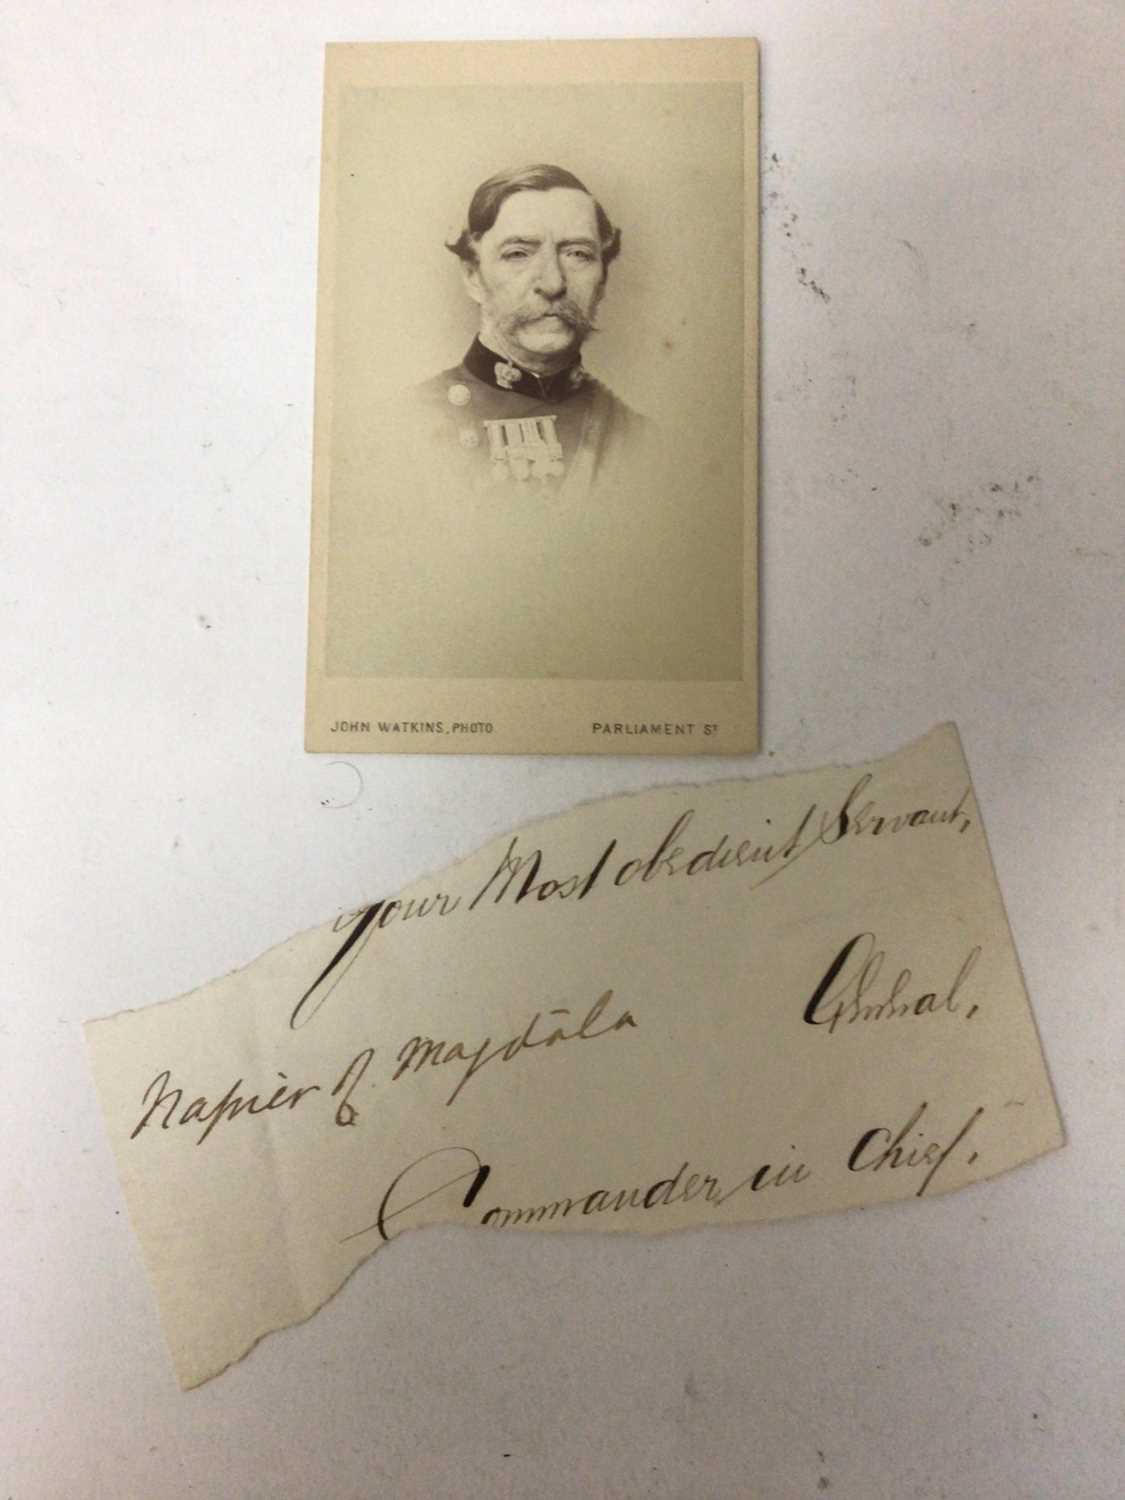 JOHN WATKINS, PHOTO PARLIAMENT ST
Your Most obedient Servant,
Napier of Magdāla General,
Commander in Chief.